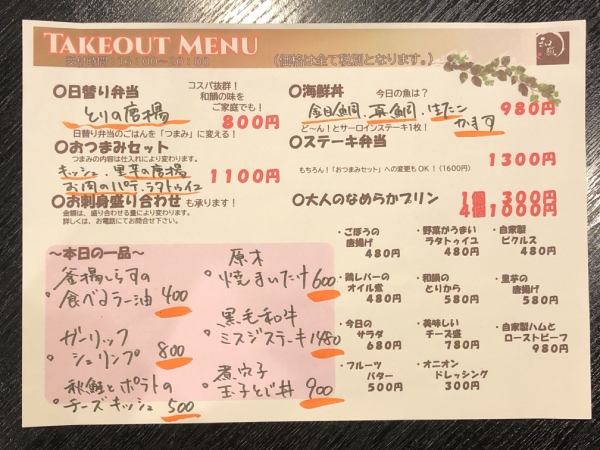 TAKEOUT MENU
(価格は全て税別となります。)
和風
〇日替り弁当
コスパ抜群!
和韻の味を
ご家庭でも!
とりの唐揚
800円
日替り弁当のごはんを「つまみ」に変える!
〇おつまみセット
つまみの内容は仕入れにより変わります。
キッシュ、里芋の唐揚
お肉のパテ、ラタトゥイユ
1100円
〇お刺身盛り合わせ も承ります!
金額は、盛り合わせる量により変わります。
詳しくは、お電話にてお問合せ下さい。
〇海鮮丼
今日の魚は?
金目鯛、真鯛、ぼたん
かます
980円
ど~ん!とサーロインステーキ1枚!
〇ステーキ弁当
1300円
もちろん!「おつまみセット」への変更もOK!(1600円)
〇大人のなめらかプリン
1個 300円
4個1000円
~本日の一品~
釜揚しらすの
食べるラー油 400
ガーリック
シュリンプ 800
秋鮭とポテトの
チーズキッシュ 500
原木
焼きまいたけ 600
黒毛和牛
ミスジステーキ 1480
煮穴子
玉子とじ丼 900
・ごぼうの
唐揚げ
480円
・野菜がうまい
ラタトゥイユ
480円
・自家製
ピクルス
480円
・鶏レバーの
オイル煮
480円
・和韻の
とりから
580円
・里芋の
唐揚げ
580円
・今日の
サラダ
680円
・美味しい
チーズ盛
780円
・自家製ハムと
ローストビーフ
980円
・フルーツ
バター
500円
・オニオン
ドレッシング
300円